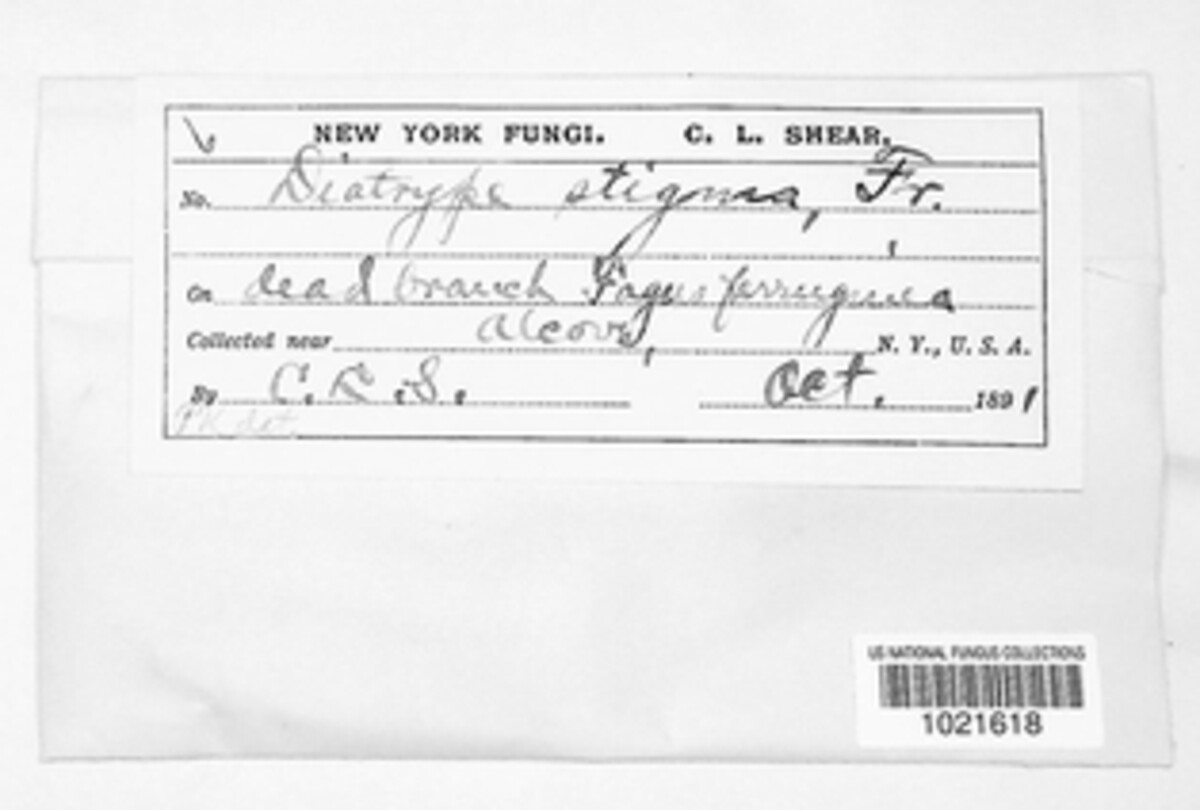 NEW YORK FUNGI. C. L. SHEAR.
No. Diatrype stigma, Fr.
On dead branch Fagus ferruginea
Collected near Alcove, N. Y., U. S. A.
By C. L. S. Oct. 1891
det.
US NATIONAL FUNGUS COLLECTIONS
1021618